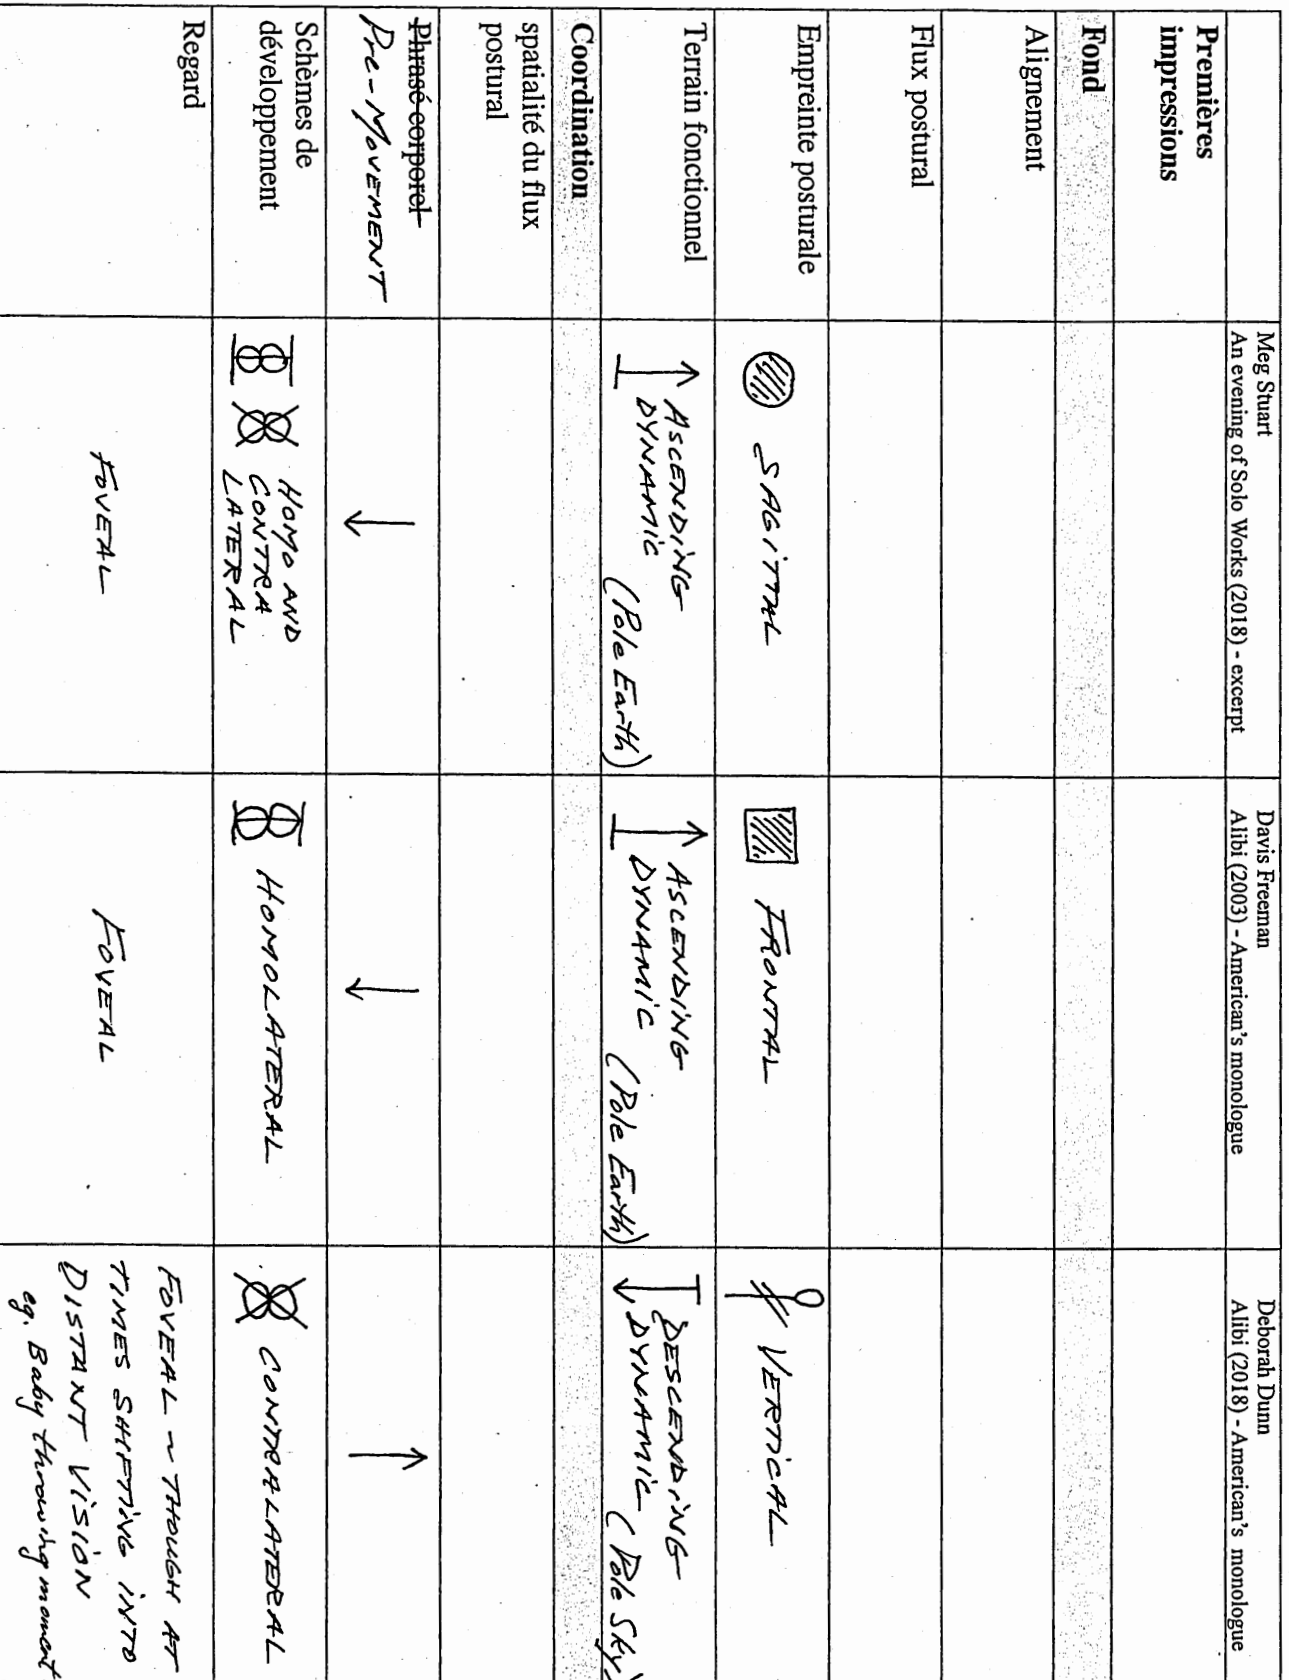 Meg Stuart
An evening of Solo Works (2018) - excerpt
Davis Freeman
Alibi (2003) - American's monologue
Deborah Dunn
Alibi (2018) - American's monologue
Premières
impressions
Fond
Alignement
Flux postural
Empreinte posturale
SAGITTAL
FRONTAL
VERTICAL
Terrain fonctionnel
ASCENDING
DYNAMIC
(Pole Earth)
ASCENDING
DYNAMIC
(Pole Earth)
DESCENDING
DYNAMIC
(Pole Sky)
Coordination
spatialité du flux
postural
Phrasé corporel
Pre-MOVEMENT
Schèmes de
développement
HOMO AND
CONTRA
LATERAL
HOMOLATERAL
CONTRALATERAL
Regard
FOVEAL
FOVEAL
FOVEAL ~ THOUGH AT
TIMES SHIFTING INTO
DISTANT VISION
eg. Baby throwing moment